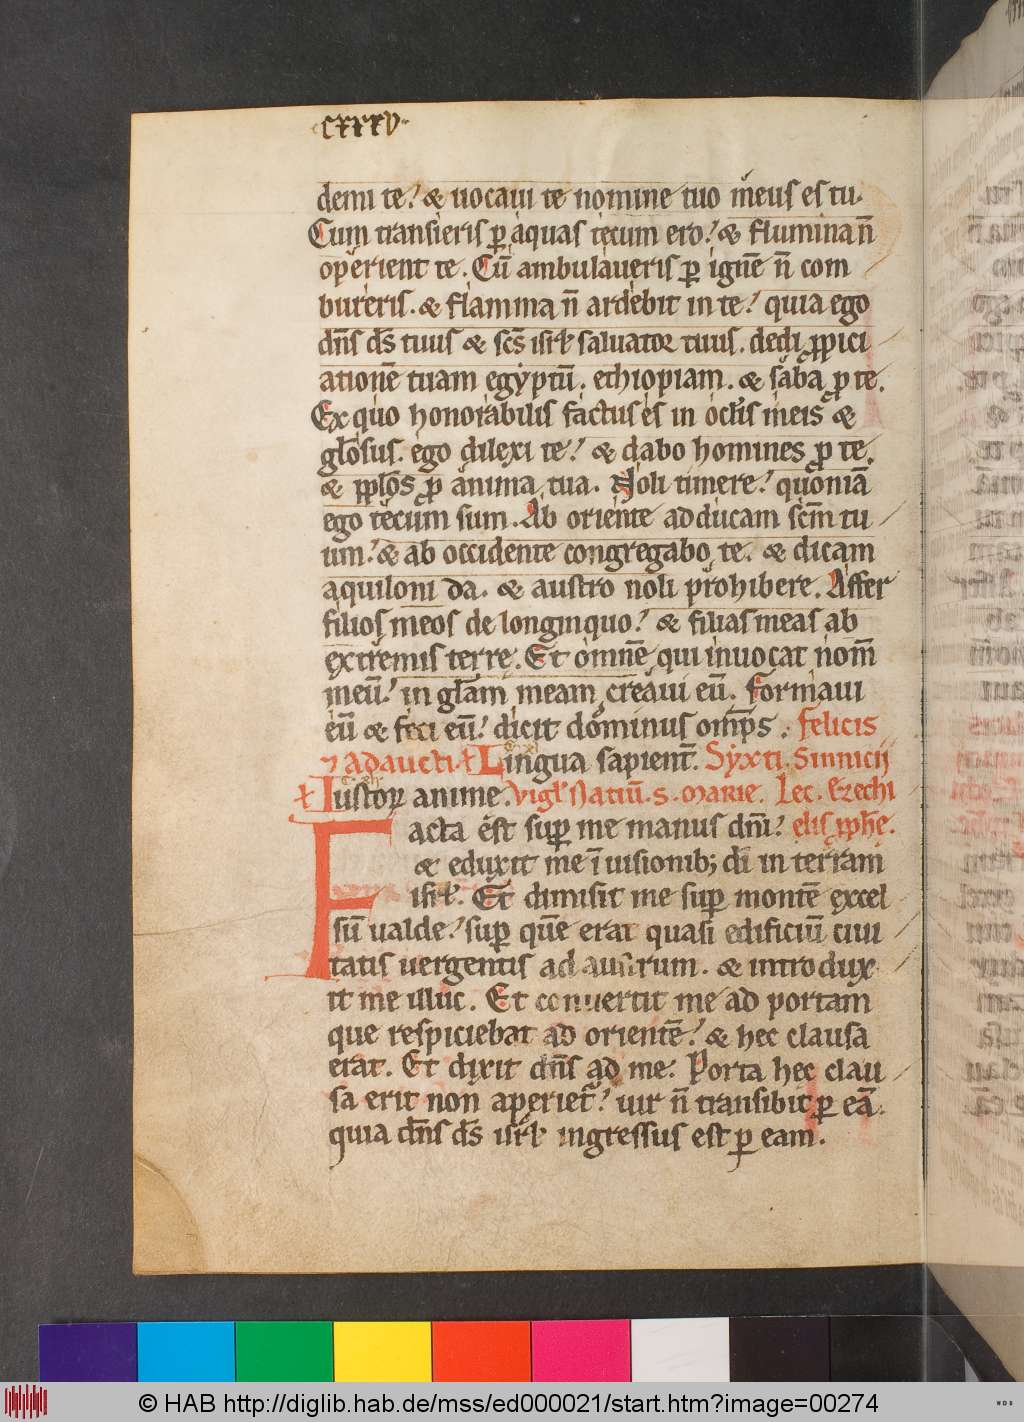 cxxxv
demi te? & uocaui te nomine tuo meus es tu.
Cum transieris ꝑ aquas tecum ero? & flumina n̄
operient te. Cū ambulaueris ꝑ ignē n̄ com
bureris. & flamma n̄ ardebit in te? quia ego
dn̄s ds̄ tuus & scs̄ isrl̄ saluator tuus. dedi ꝓpici
ationē tuam egyptū. ethiopiam. & saba ꝓ te.
Ex quo honorabilis factus es in oclis meis &
glosus. ego dilexi te? & dabo homines ꝓ te.
& pplos ꝓ anima tua. Noli timere? quoniā
ego tecum sum. Ab oriente adducam scm̄ tu
um? & ab occidente congregabo te. & dicam
aquiloni da. & austro noli prohibere. Affer
filios meos de longinquo? & filias meas ab
extremis terre. Et omnē qui inuocat nom̄
meū? in glam̄ meam creaui eū. formaui
eū & feci eū? dicit dominus omp̄s. felicis
⁊ adaucti. Lingua sapient̄. Syxti. Sinnicij
Iustoꝝ anime. Vigl̄ Natiū. s. marie. Lec. Ezechi
Facta est suꝑ me manus dn̄i? elis ꝓphe.
& eduxit me ī uisionib; di in terram
isrl̄. Et dimisit me suꝑ montē excel
sū ualde? suꝑ quē erat quasi edificiū ciui
tatis uergentis ad austrum. & introdux
it me illuc. Et conuertit me ad portam
que respiciebat ad orientē? & hec clausa
erat. Et dixit dn̄s ad me: Porta hec clau
sa erit non aperiet? uir n̄ transibit ꝑ eā.
quia dn̄s ds̄ isrl̄ ingressus est ꝑ eam.
© HAB http://diglib.hab.de/mss/ed000021/start.htm?image=00274